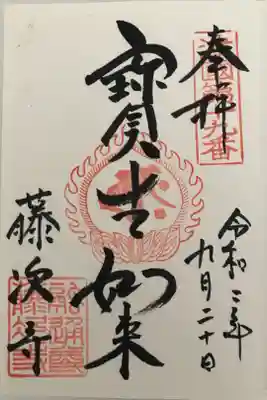 奉拝
寶生如来
藤次寺
令和二年
九月二十日